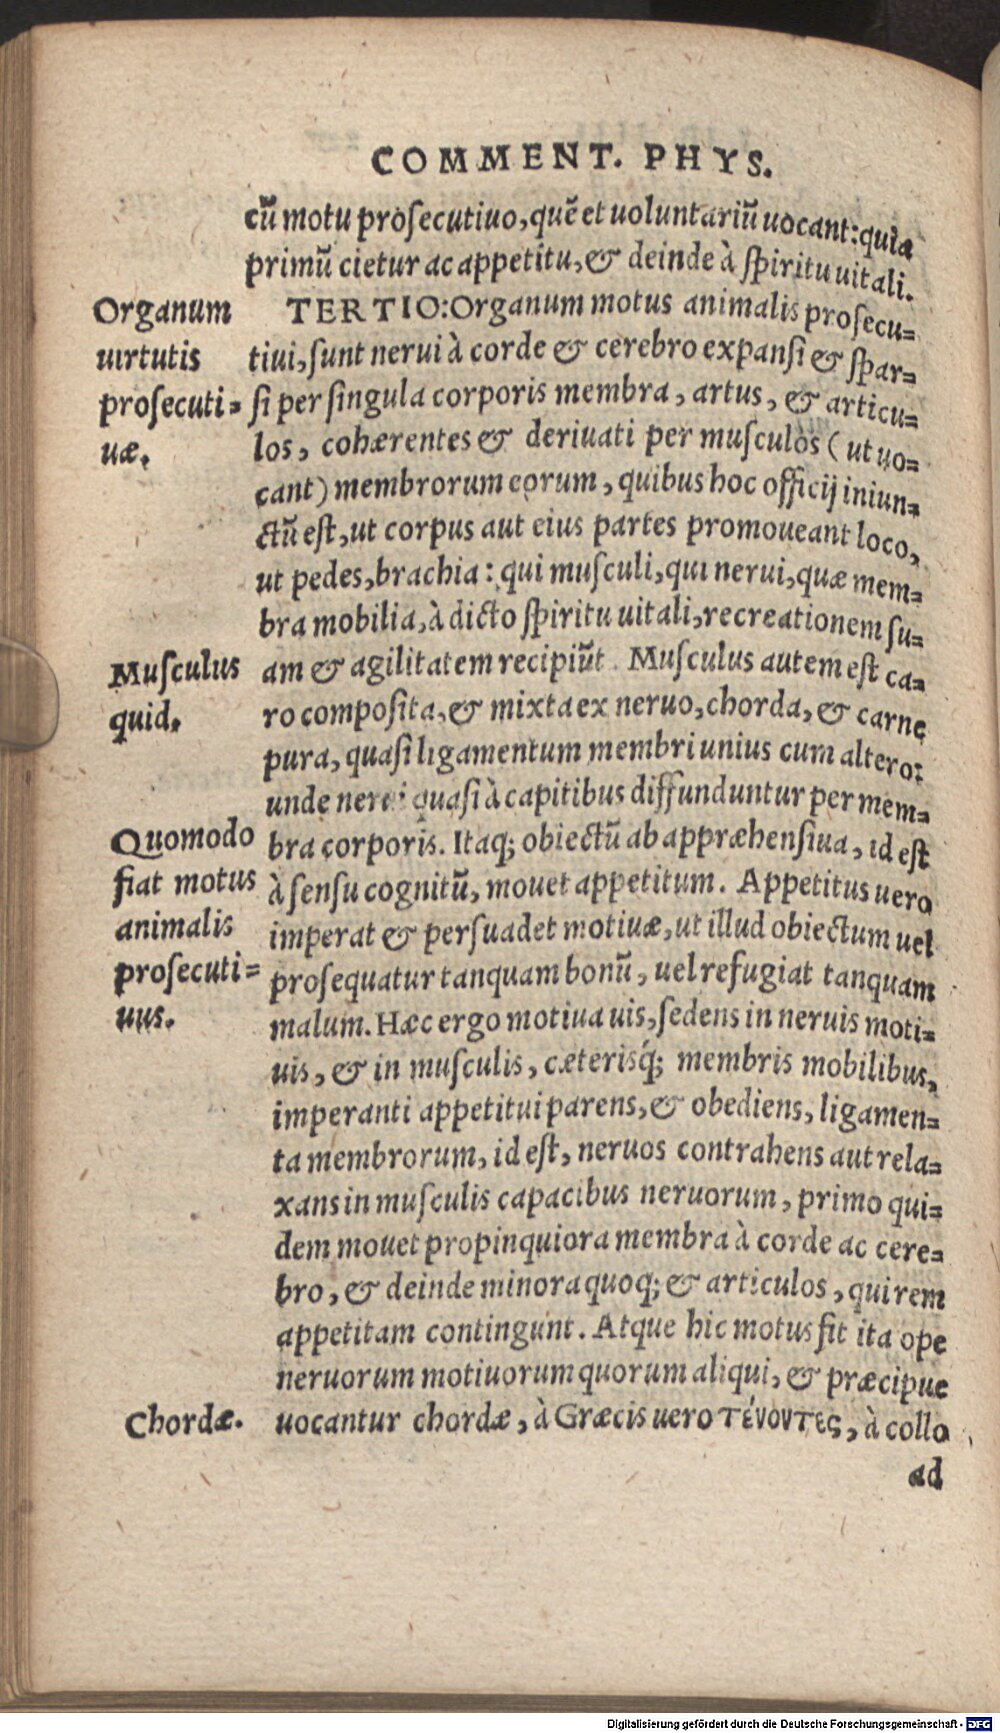 COMMENT. PHYS.
cū motu prosecutiuo, quē et uoluntariū uocant: quia
primū cietur ac appetitu, & deinde à spiritu uitali.
Organum
uirtutis
prosecuti-
uæ.
TERTIO: Organum motus animalis prosecu-
tiui, sunt nerui à corde & cerebro expansi & spar-
si per singula corporis membra, artus, & articu-
los, cohærentes & deriuati per musculos (ut uo-
cant) membrorum eorum, quibus hoc officij iniun-
ctū est, ut corpus aut eius partes promoueant loco,
ut pedes, brachia: qui musculi, qui nerui, quæ mem-
bra mobilia, à dicto spiritu uitali, recreationem su-
Musculus
quid.
am & agilitatem recipiūt. Musculus autem est ca-
ro composita, & mixta ex neruo, chorda, & carne
pura, quasi ligamentum membri unius cum altero:
unde quasi à capitibus diffunduntur per mem-
Quomodo
fiat motus
animalis
prosecuti-
uus.
bra corporis. Itaq; obiectū ab appræhensiua, id est
à sensu cognitū, mouet appetitum. Appetitus uero
imperat & persuadet motiuæ, ut illud obiectum uel
prosequatur tanquam bonū, uel refugiat tanquam
malum. Hæc ergo motiua uis, sedens in neruis moti-
uis, & in musculis, cæterisq́; membris mobilibus,
imperanti appetitui parens, & obediens, ligamen-
ta membrorum, id est, neruos contrahens aut rela-
xans in musculis capacibus neruorum, primo qui-
dem mouet propinquiora membra à corde ac cere-
bro, & deinde minora quoq; & articulos, qui rem
appetitam contingunt. Atque hic motus fit ita ope
neruorum motiuorum quorum aliqui, & præcipue
Chordæ.
uocantur chordæ, à Græcis uero τένοντες, à collo
ad
Digitalisierung gefördert durch die Deutsche Forschungsgemeinschaft - DFG